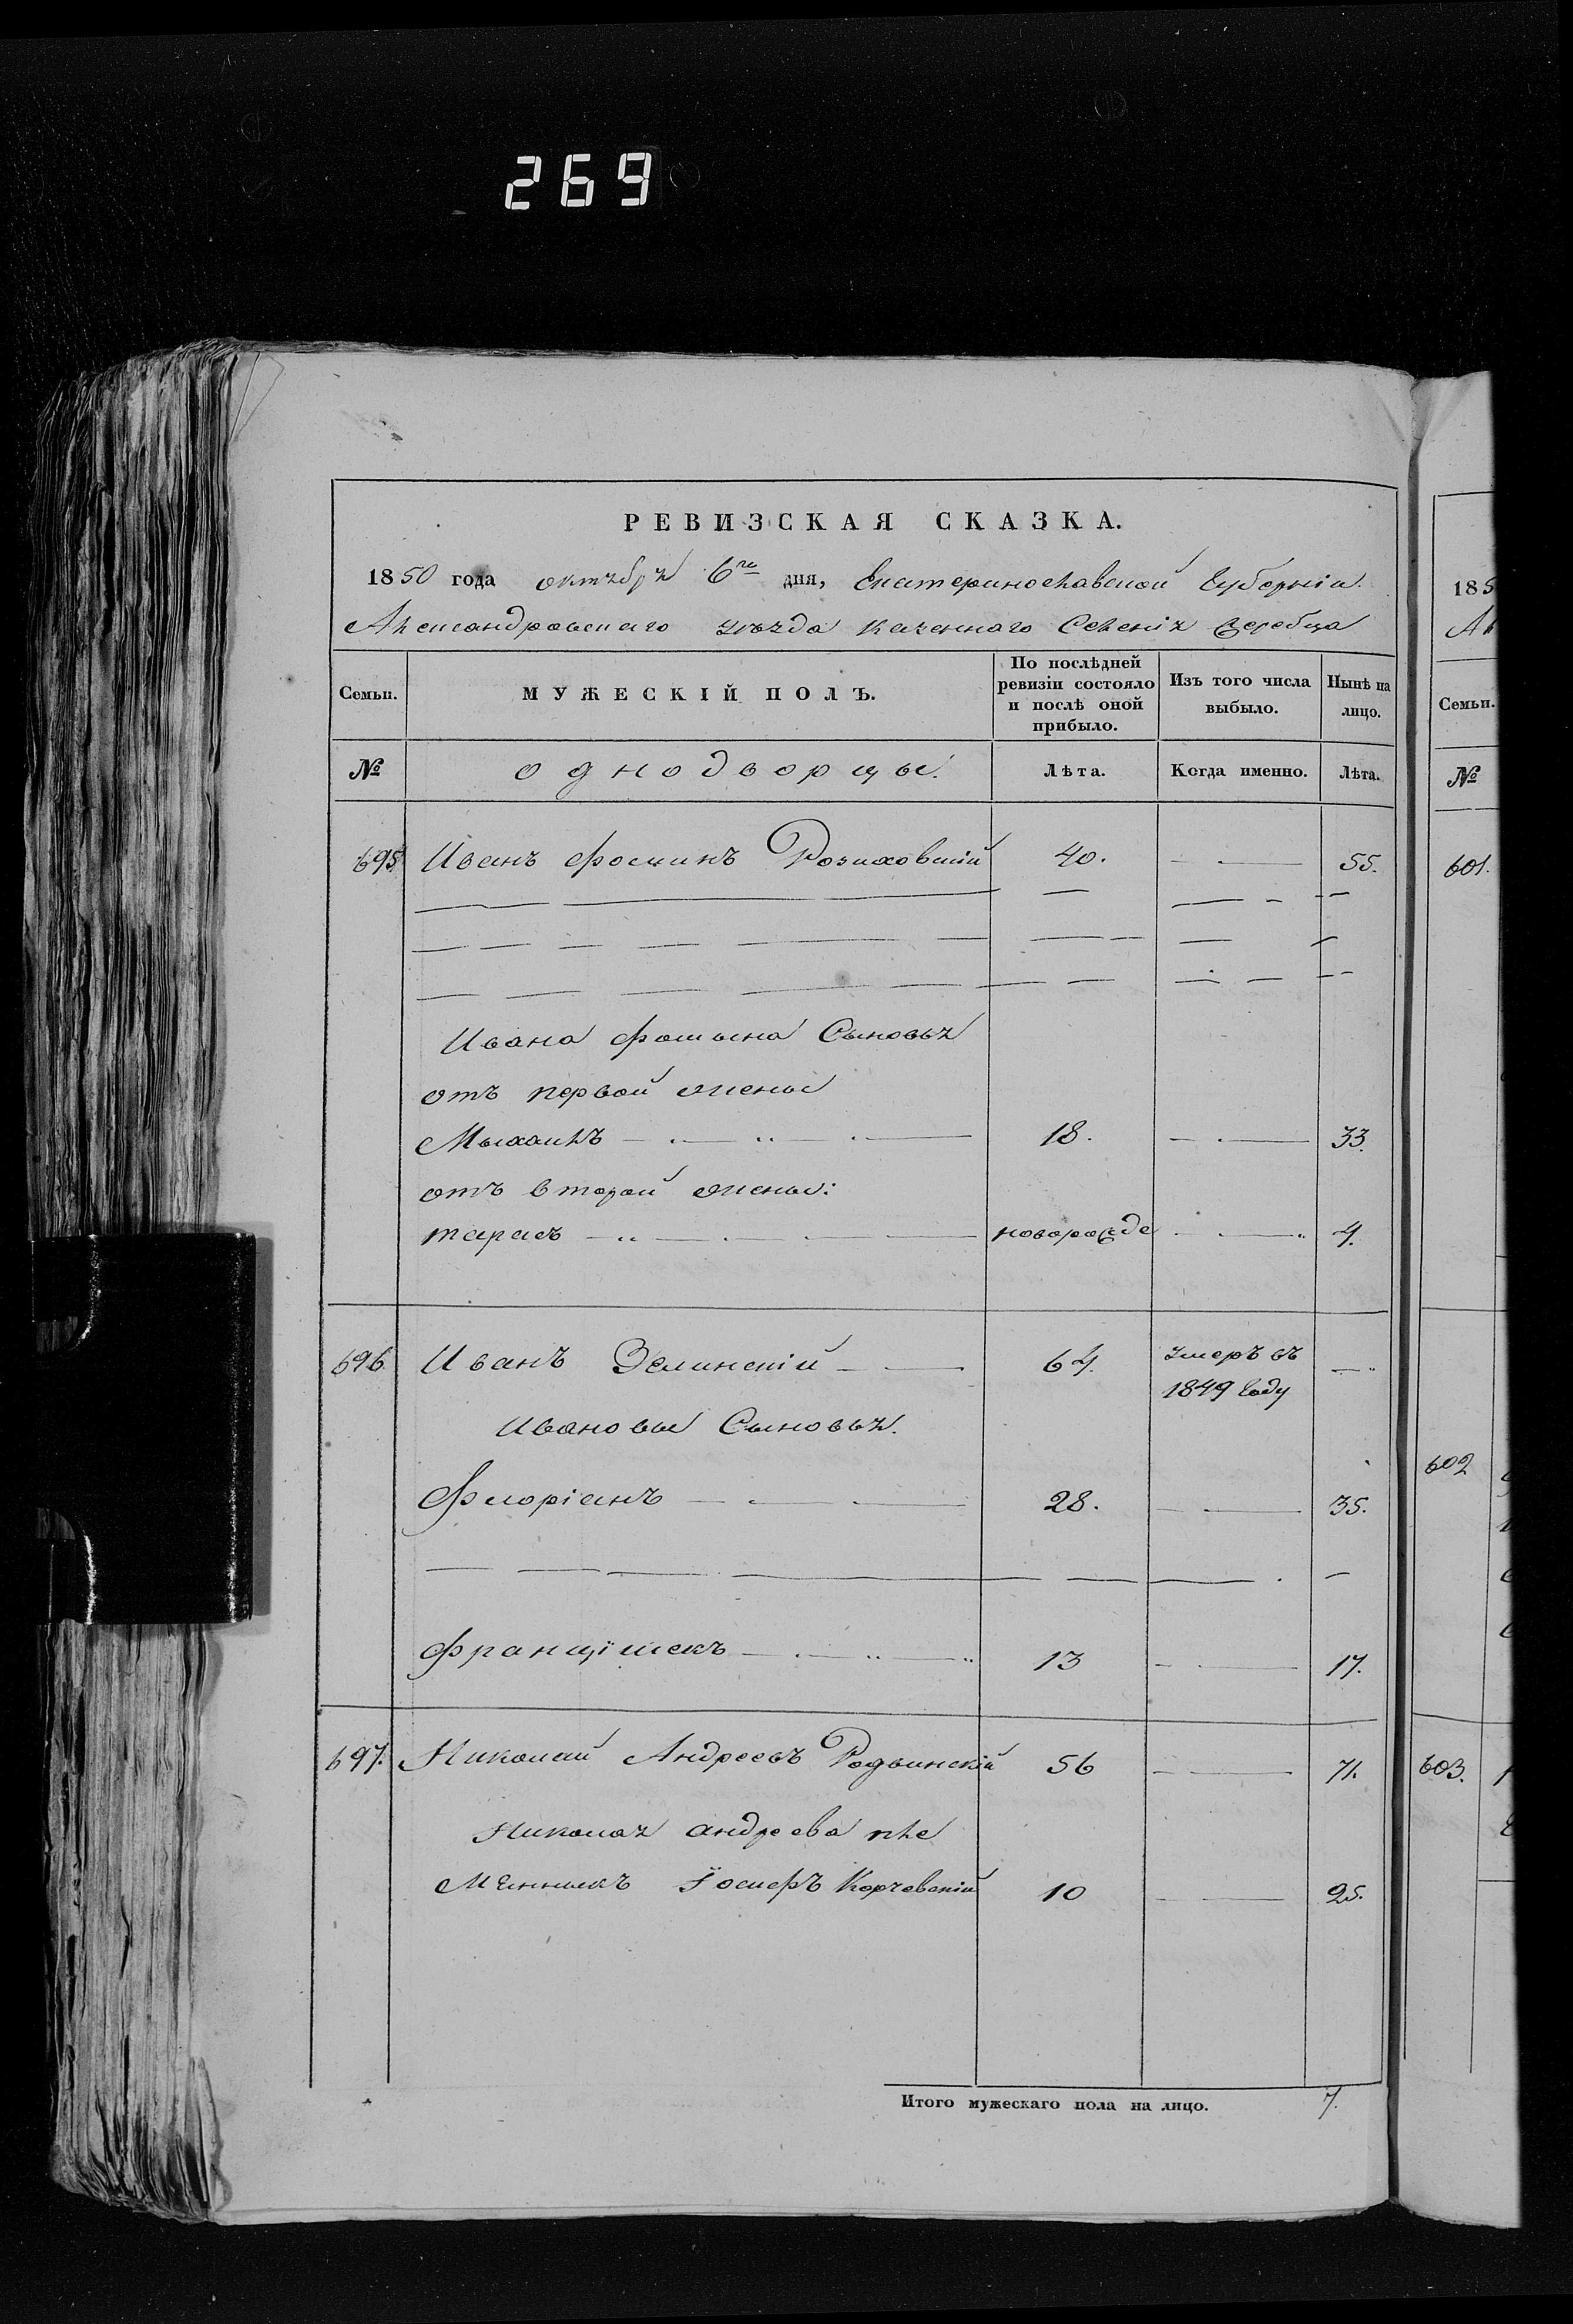 269
РЕВИЗСКАЯ СКАЗКА.
1850 года октября 6го дня, Екатеринославской Губерніи
Александровскаго уѣзда казеннаго Селенія Жеребца
Семьи. МУЖЕСКІЙ ПОЛЪ. По послѣдней ревизіи состояло и послѣ оной прибыло. Изъ того числа выбыло. Нынѣ на лицо.
№ однодворцы. Лѣта. Когда именно. Лѣта.
695 Иванъ Фоминъ 40. 55.
Ивана Фомина Сыновья
отъ первой жены
Михаилъ 18. 33.
отъ второй жены:
тарасъ новорожде 4.
696 Иванъ Зелинскій 64. умеръ въ
1849 Году
Ивановы Сыновья.
Флоріанъ 28. 35.
Францїшекъ 13 17.
697. Николай Андреевъ 56 71.
Николая андреева пле
Мянникъ Їосифъ Корчевскій 10 25.
Итого мужескаго пола на лицо. 7.
185
Ал
Семьи.
№
601.
602
603.